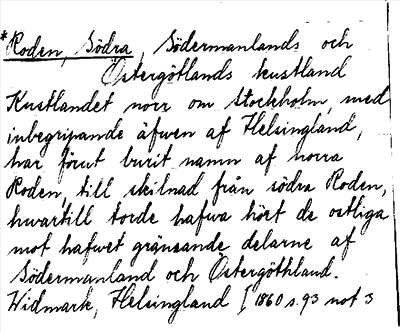 *Roden, Södra, Södermanlands och
Östergötlands kustland
Kustlandet norr om Stockholm, med
inbegripande äfwen af Helsingland,
har förut burit namn af norra
Roden, till skilnad från södra Roden,
hwartill torde hafwa hört de ostliga
mot hafwet gränsande delarne af
Södermanland och Östergöthland.
Widmark, Helsingland [1860 s. 93 not 3